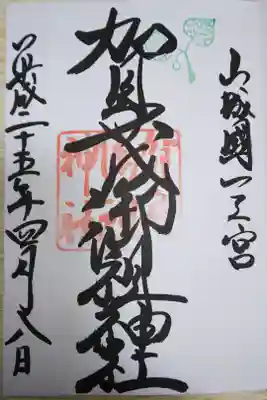 山城國一之宮
賀茂御祖神社
平成二十五年四月十八日